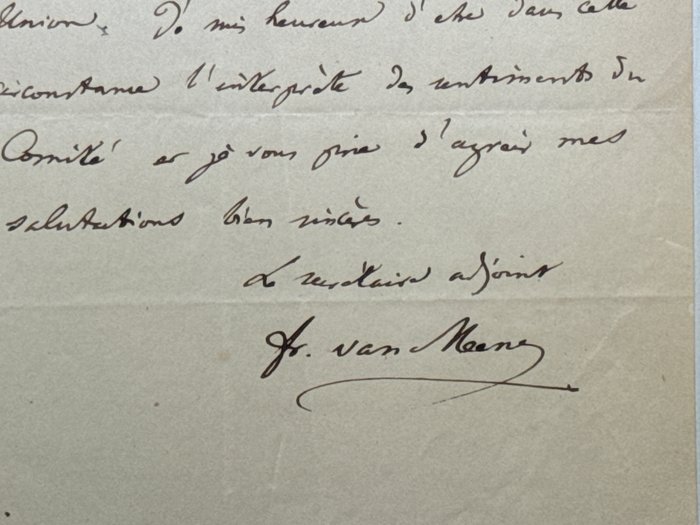 Union. Je suis heureux d'être dans cette
circonstance l'interprète des sentiments du
Comité et je vous prie d'agréer mes
salutations bien sincères.
Le secrétaire adjoint
Fr. van Meenen